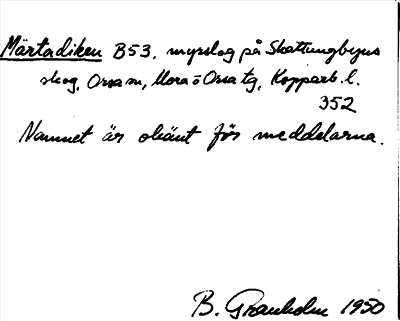 Märtadiken B53. myrslog på Skattungbyns
skog, Orsa sn, Mora o Orsa tg, Kopparb. l.
352
Namnet är okänt för meddelarna.
B. Granholm 1950